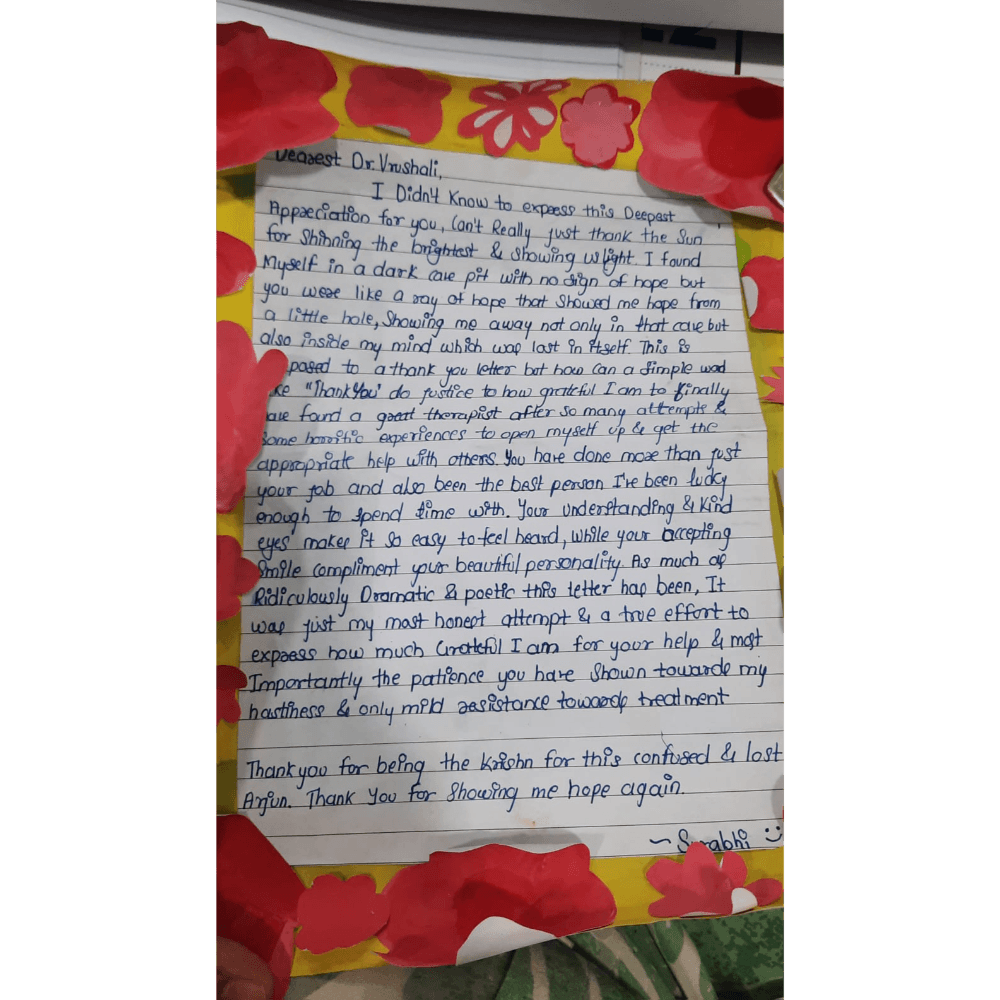 Dearest Dr. Vrushali,
I Didn't Know to expeess this Deepest
Appreciation for you, Can't Really just thank the Sun
for Shinning the brightest & showing us light. I found
Myself in a dark cave pit with no sign of hope but
you were like a ray of hope that showed me hope from
a little hole, Showing me away not only in that cave but
also inside my mind which was lost in itself. This is
posed to a thank you letter but how can a simple word
ke "Thank You" do justice to how grateful I am to finally
ave found a great therapist after so many attempts &
some horrific experiences to open myself up & get the
appropriate help with others. You have done more than just
your job and also been the best person I've been lucky
enough to spend time with. Your understanding & kind
eyes makes it so easy to feel heard, while your accepting
smile compliment your beautiful personality. As much as
Ridiculously Dramatic & poetic this letter has been, It
was just my most honest attempt & a true effort to
expraess how much Grateful I am for your help & most
Importantly the patience you have shown towards my
hastiness & only mild resistance towards treatment
Thank you for being the Krishn for this confused & lost
Arjun. Thank You for showing me hope again.
~ Surabhi :)